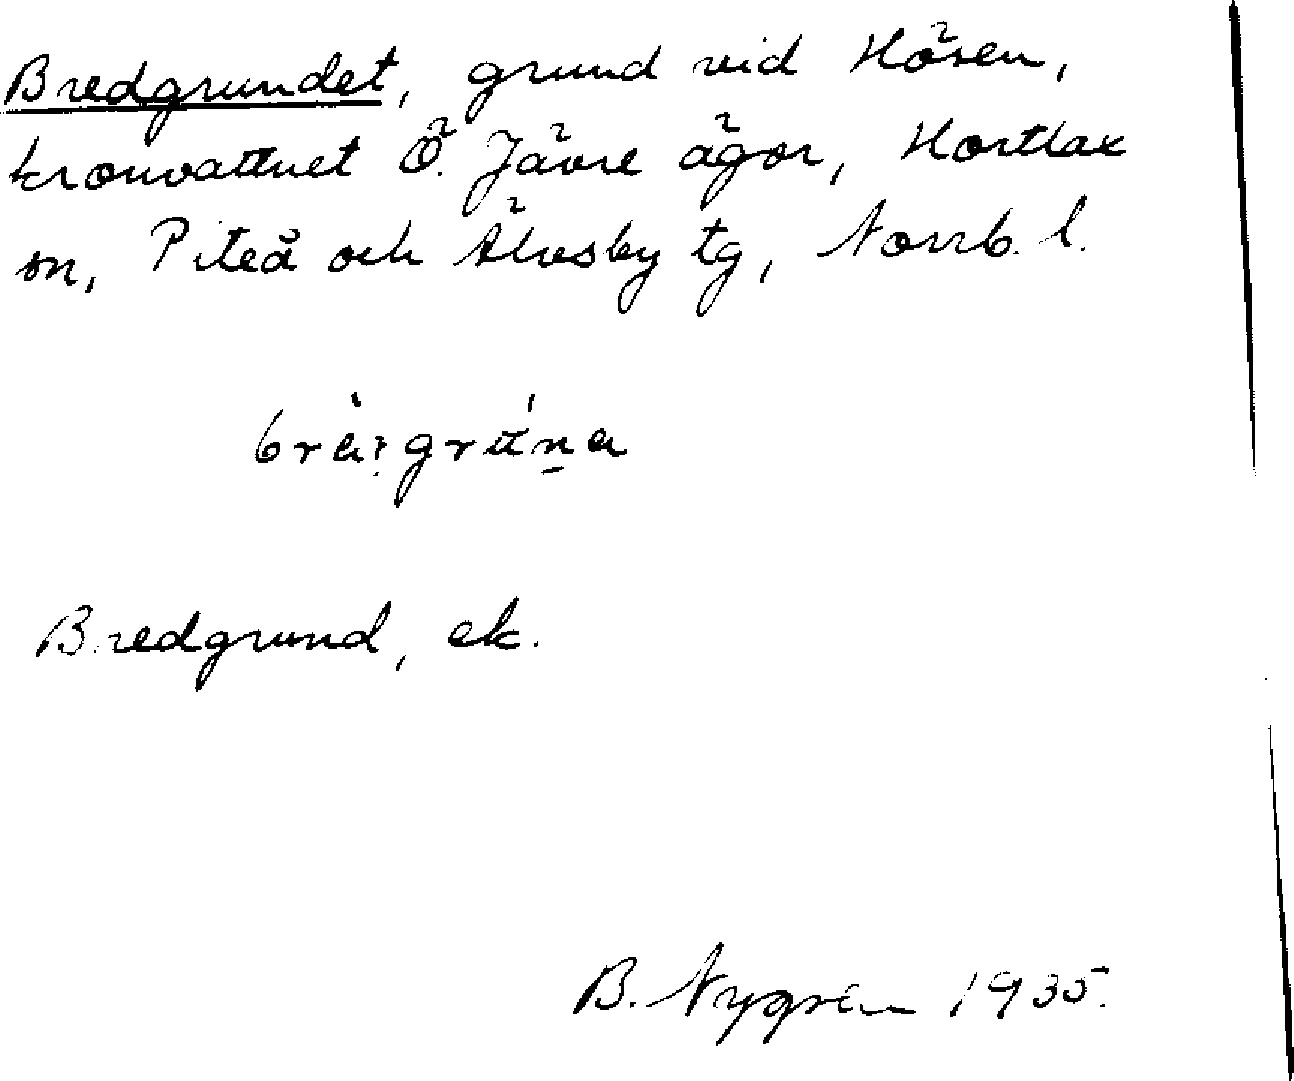 Bredgrundet, grund vid Hösen,
kronvattnet Ö. Jävre ägor, Hortlax
sn, Piteå och Älvsby tg, Norrb. l.
Bredgrund, ek.
B. Nygren 1935.